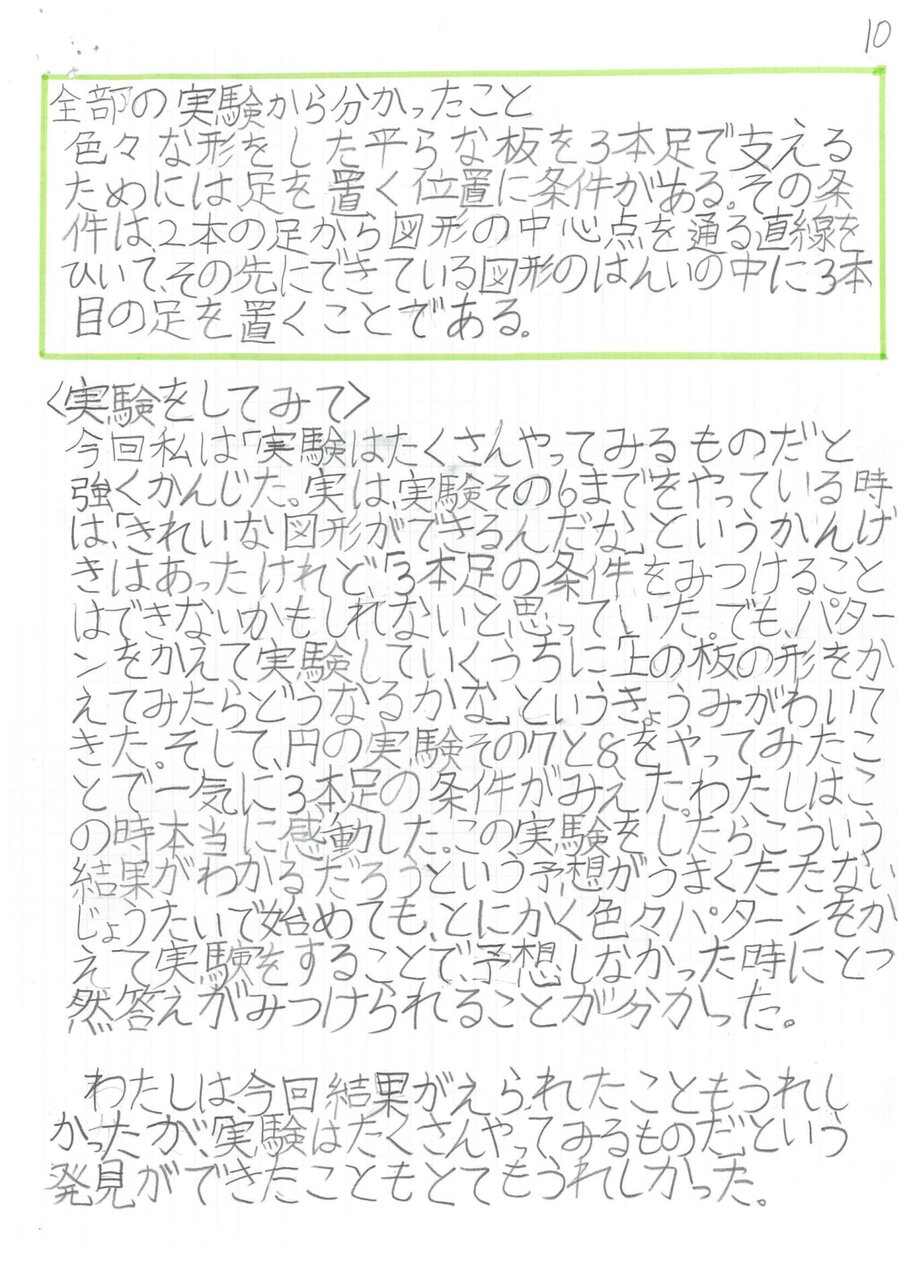 10
全部の実験から分かったこと
色々な形をした平らな板を3本足で支える
ためには足を置く位置に条件がある。その条
件は、2本の足から図形の中心点を通る直線を
ひいて、その先にできている図形のはんいの中に3本
目の足を置くことである。
〈実験をしてみて〉
今回私は「実験はたくさんやってみるものだ」と
強くかんじた。実は、実験その6までをやっている時
は、「きれいな図形ができるんだな」というかんげ
きはあったけれど「3本足の条件をみつけること
はできないかもしれない」と思っていた。でも、パター
ンをかえて実験していくうちに「上の板の形をか
えてみたらどうなるかな」というきょうみがわいて
きた。そして、円の実験その7と8をやってみたこ
とで一気に3本足の条件がみえた。わたしはこ
の時本当に感動した。この実験をしたらこういう
結果がわかるだろうという予想がうまくたたない
じょうたいで始めても、とにかく色々パターンをか
えて実験をすることで、予想しなかった時にとつ
然答えがみつけられることが分かった。
わたしは、今回結果がえられたこともうれし
かったが、実験はたくさんやってみるものだ、という
発見ができたこともとてもうれしかった。